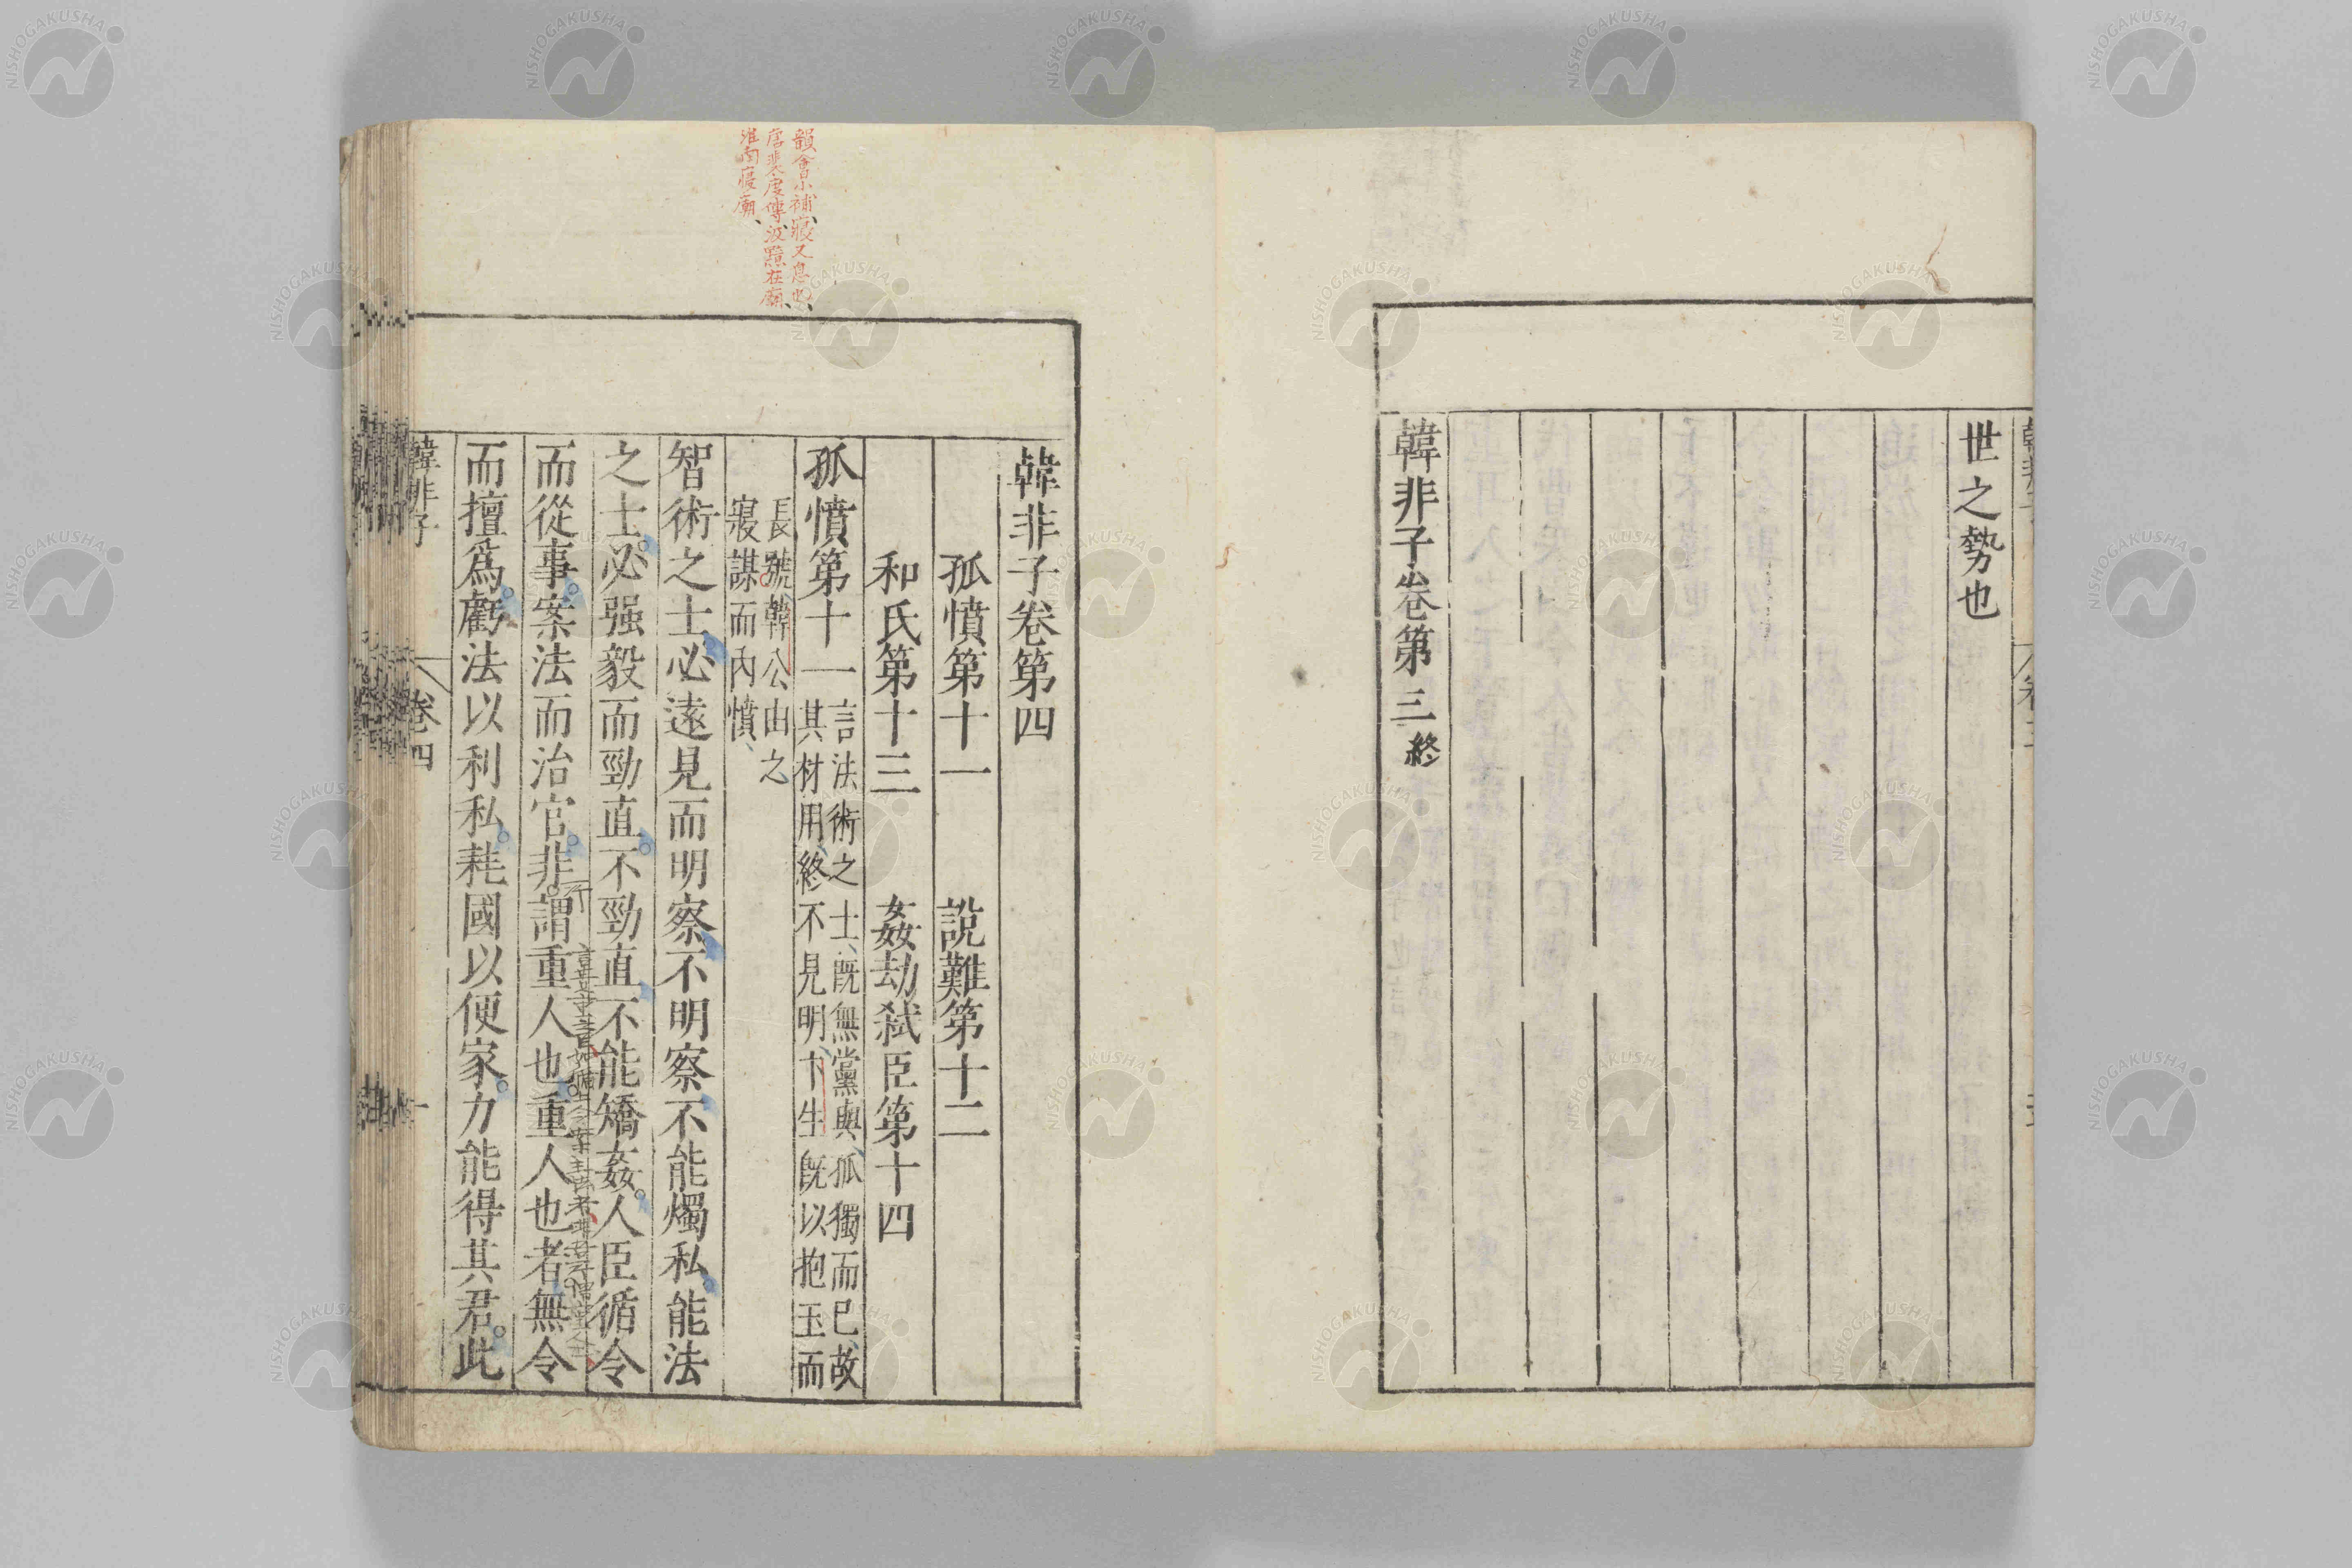 世之勢也
韓非子卷第三 終
韓非子卷第四
孤憤第十一 說難第十二
和氏第十三 姦劫弒臣第十四
孤憤第十一
言法術之士、既無黨與、孤獨而已、故
其材用終不見明、卞生既以抱玉而
長號、韓公由之
寢謀而內憤、
智術之士、必遠見而明察、不明察、不能燭私。能法
之士。必强毅而勁直。不勁直、不能矯姦。人臣循令
而從事。案法而治官。非謂重人也。重人也者。無令
而擅爲。虧法以利私。耗國以便家。力能得其君。此
韓非子
卷四
一
韻會小補、寢又息也、
唐裴度傳、汲黯在廟、
淮南寢廟、
NISHOGAKUSHA